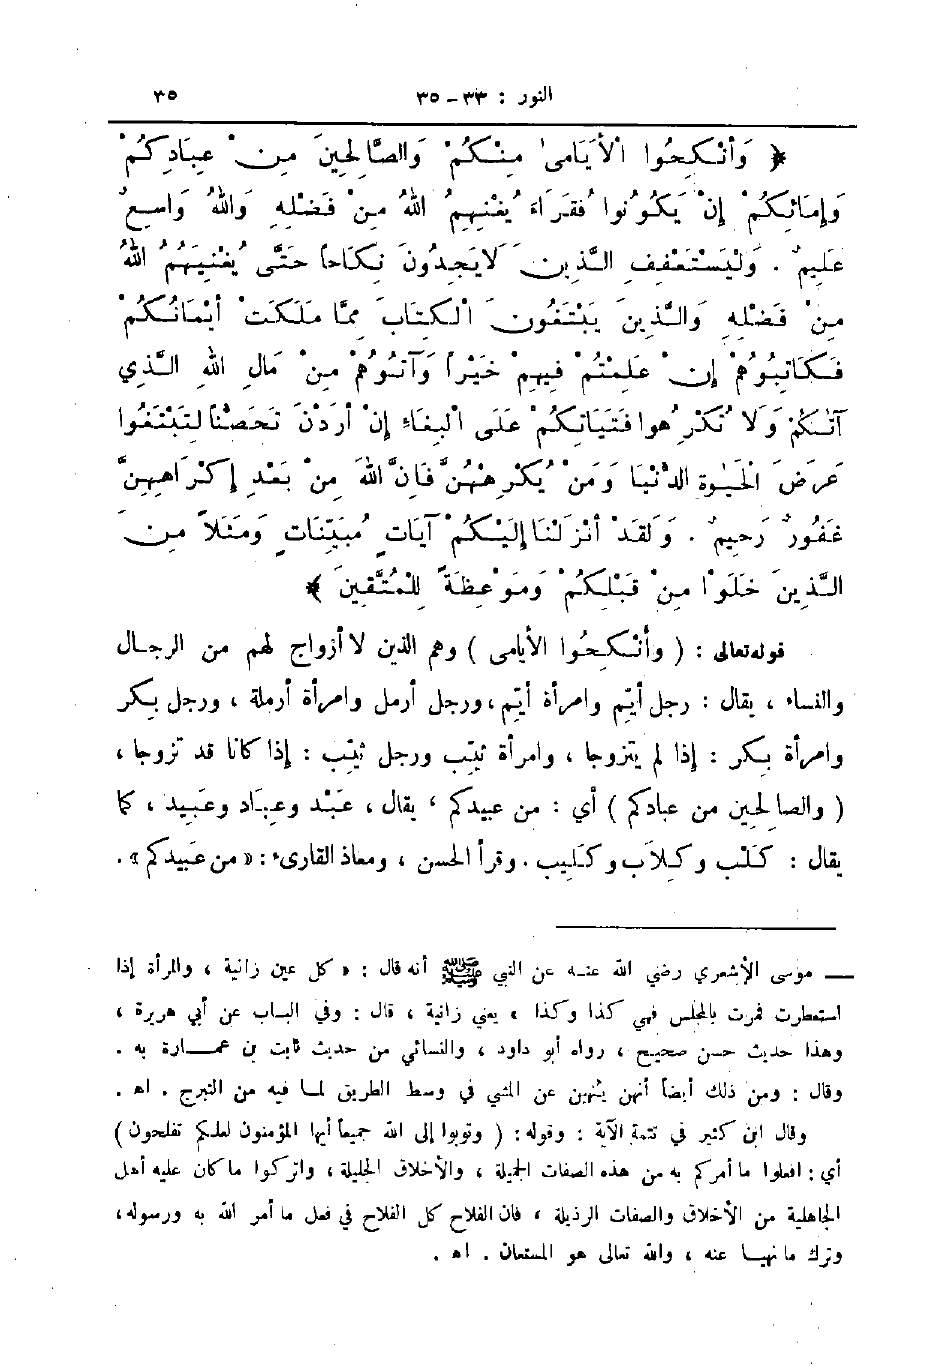 النور : ٣٣ – ٣٥ ٣٥
﴿ وَأَنْكِحُوا الْأَيَامَى مِنْكُمْ وَالصَّالِحِينَ مِنْ عِبَادِكُمْ
وَإِمَائِكُمْ إِنْ يَكُونُوا فُقَرَاءَ يُغْنِهِمُ اللهُ مِنْ فَضْلِهِ وَاللهُ وَاسِعٌ
عَلِيمٌ . وَلْيَسْتَعْفِفِ الَّذِينَ لَا يَجِدُونَ نِكَاحاً حَتَّى يُغْنِيَهُمُ اللهُ
مِنْ فَضْلِهِ وَالَّذِينَ يَبْتَغُونَ الْكِتَابَ مِمَّا مَلَكَتْ أَيْمَانُكُمْ
فَكَاتِبُوهُمْ إِنْ عَلِمْتُمْ فِيهِمْ خَيْراً وَآتُوهُمْ مِنْ مَالِ اللهِ الَّذِي
آتَاكُمْ وَلَا تُكْرِهُوا فَتَيَاتِكُمْ عَلَى الْبِغَاءِ إِنْ أَرَدْنَ تَحَصُّناً لِتَبْتَغُوا
عَرَضَ الْحَيٰوةِ الدُّنْيَا وَمَنْ يُكْرِهْهُنَّ فَإِنَّ اللهَ مِنْ بَعْدِ إِكْرَاهِهِنَّ
غَفُورٌ رَحِيمٌ . وَلَقَدْ أَنْزَلْنَا إِلَيْكُمْ آيَاتٍ مُبَيِّنَاتٍ وَمَثَلاً مِنَ
الَّذِينَ خَلَوْا مِنْ قَبْلِكُمْ وَمَوْعِظَةً لِلْمُتَّقِينَ ﴾
قوله تعالى : ( وأَنْكِحُوا الأيامى ) وهم الذين لا أزواج لهم من الرجال
والنساء ، يقال : رجل أيّم وامرأة أيّم ، ورجل أرمل وامرأة أرملة ، ورجل بكر
وامرأة بكر : إذا لم يتزوجا ، وامرأة ثيّب ورجل ثيّب : إذا كانا قد تزوجا ،
( والصالحين من عبادكم ) أي : من عبيدكم ، يقال ، عَبْد وعِبَاد وعَبيد ، كما
يقال : كَلْب وكِلاَب وكَلِيب . وقرأ الحسن ، ومعاذ القارىء : « من عَبيدكم » .
— موسى الأشعري رضي الله عنه عن النبي ﷺ أنه قال : « كل عين زانية ، والمرأة إذا
استعطرت فمرت بالمجلس فهي كذا وكذا » يعني زانية ، قال : وفي الباب عن أبي هريرة ،
وهذا حديث حسن صحيح ، رواه أبو داود ، والنسائي من حديث ثابت بن عمارة به .
وقال : ومن ذلك أيضاً أنهن يُنهين عن المشي في وسط الطريق لما فيه من التبرج . اه .
وقال ابن كثير في تتمة الآية : وقوله : ( وتوبوا إلى الله جميعاً أيها المؤمنون لعلكم تفلحون )
أي : افعلوا ما أمركم به من هذه الصفات الجميلة ، والأخلاق الجليلة ، واتركوا ما كان عليه أهل
الجاهلية من الأخلاق والصفات الرذيلة ، فان الفلاح كل الفلاح في فعل ما أمر الله به ورسوله ،
وترك ما نهيا عنه ، والله تعالى هو المستعان . اه .